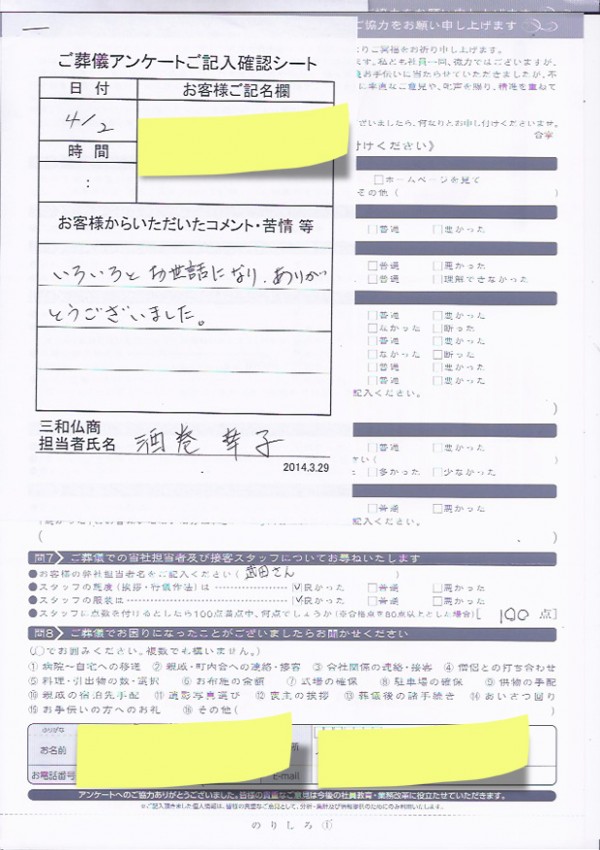 協力をお願い申し上げます
ご協力をお願い申し上げます
ご葬儀アンケートご記入確認シート
日 付
お客様ご記名欄
4/2
時 間
:
お客様からいただいたコメント・苦情 等
いろいろとお世話になり、ありが
とうございました。
三和仏商
担当者氏名 酒巻 幸子
2014.3.29
りご冥福をお祈り申し上げます。
ございましたら、何なりとお申し付けくださいませ。
合掌
付けください》
□ホームページを見て
その他(
)
□普通 □悪かった
□普通 □悪かった
□普通 □理解できなかった
□普通 □悪かった
□なかった □断った
□普通 □悪かった
□なかった □断った
□普通 □悪かった
□普通 □悪かった
記入ください。
)
□普通 □悪かった
さい(
□多かった □少なかった
□普通 □悪かった
(
)
問7 ご葬儀での当社担当者及び接客スタッフについてお尋ねいたします
●お客様の弊社担当者名をご記入ください( 武田さん )
●スタッフの態度(挨拶・行儀作法)は ☑良かった □普通 □悪かった
●スタッフの服装は ☑良かった □普通 □悪かった
●スタッフに点数を付けるとしたら100点満点中、何点でしょうか(※合格点を80点以上とした場合)[ 100 点]
問8 ご葬儀でお困りになったことがございましたらお聞かせください
(○でお囲みください。複数でも構いません。)
①病院~自宅への移送 ②親戚・町内会への連絡・接客 ③会社関係の連絡・接客 ④僧侶との打ち合わせ
⑤料理・引出物の数・選択 ⑥お布施の金額 ⑦式場の確保 ⑧駐車場の確保 ⑨供物の手配
⑩親戚の宿泊先手配 ⑪遺影写真選び ⑫喪主の挨拶 ⑬葬儀後の諸手続き ⑭あいさつ回り
⑮お手伝いの方へのお礼 ⑯その他( )
ふりがな
お名前
所
お電話番号
E-mail
アンケートへのご協力ありがとうございました。皆様の貴重なご意見は今後の社員教育・業務改革に役立たせていただきます。
のりしろ①